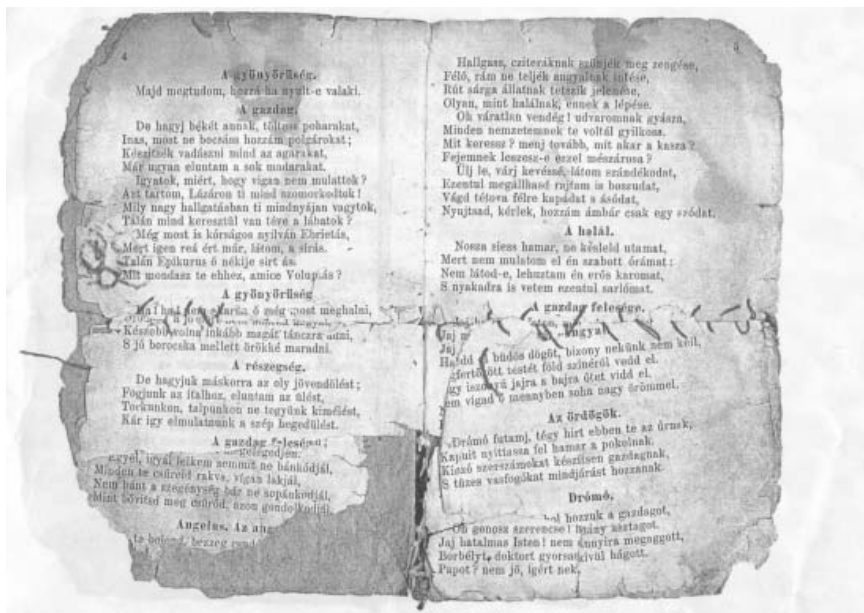 4
A gyönyörüség.
Majd megtudom, hozzá ha nyult-e valaki.
A gazdag.
De hagyj békét annak, töltess poharakat,
Inas, most ne bocsáss hozzám polgárokat;
Készitsék vadászni mind az agarakat,
Már ugyan eluntam a sok madarakat.
Igyatok, miért, hogy vigan nem mulattok?
Azt tartom, Lázáron ti mind szomorkodtok!
Mily nagy hallgatásban ti mindnyájan vagytok,
Talán mind keresztül van téve a lábatok?
Még most is kórságos nyilván Ebrietás,
Mert igen reá ért már, látom, a sirás.
Talán Epikurus ő nékije sirt ás.
Mit mondasz te ehhez, amice Voluptás?
A gyönyörüség
ő még most meghalni,
Készebb volna inkább magát tánczra adni,
S jó borocska mellett örökké maradni.
A részegség.
De hagyjuk máskorra az oly jövendölést;
Fogjunk az italhoz, eluntam az ülést,
Torkunkon, talpunkon ne tegyünk kimélést,
Kár igy elmulatnunk a szép hegedülést.
A gazdag felesége;
igyál lelkem semmit ne bánkódjál,
Minden te csüreid rakva, vigan lakjál,
Nem bánt a szegénység bár ne sopánkodjál,
Mint bővitsd meg csüröd, azon gondolkodjál.
Angelus, Az
te bolond, bezzeg
5
Hallgass, cziteráknak szünjék meg zengése,
Félő, rám ne teljék angyalnak intése,
Rút sárga állatnak tetszik jelenése,
Olyan, mint halálnak, ennek a lépése.
Oh váratlan vendég! udvaromnak gyásza,
Minden nemzetemnek te voltál gyilkosa.
Mit keressz? menj tovább, mit akar a kasza?
Fejemnek leszesz-e ezzel mészárosa?
Ülj le, várj kevéssé, látom szándékodat,
Ezentul megállhasd rajtam is boszudat,
Vágd tétova félre kapádat s ásódat,
Nyujtsad, kérlek, hozzám ámbár csak egy szódat.
A halál.
Nosza siess hamar, ne késleld utamat,
Mert nem mulatom el én szabott órámat:
Nem látod-e, lehuztam én erős karomat,
S nyakadra is vetem ezentul sarlómat.
A gazdag felesége.
Jaj
Jaj
büdös dögöt, bizony nekünk nem kell,
testét föld szinéről vedd el.
iszonyú jajra s bajra őtet vidd el.
vigad ő mennyben soha nagy örömmel.
Az ördögök.
Drómó futamj, tégy hirt ebben te az úrnak,
Kapuit nyittassa fel hamar a pokolnak,
Kinzó szerszámokat készitsen gazdagnak,
S tüzes vasfogókat mindjárást hozzanak.
Drómó.
hozzuk a gazdagot,
Oh gonosz szerencse! asztagot.
Jaj hatalmas Isten! nem annyira megaggott,
Borbélyt, doktort gyorsan kivül hágott.
Papot? nem jő, igért nek,